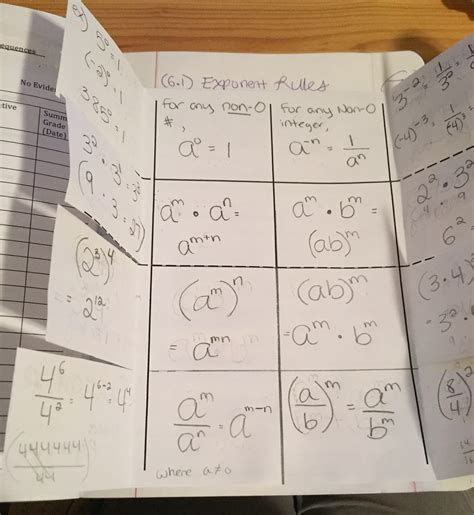 equences
No Evide
tive
Summ
Grade
(Date)
ex) 5⁰ = 1
(-2)⁰ = 1
385⁰ = 1
3² · 3¹ = 3³
(9 · 3 = 27)
(2³)⁴
= 2¹²
4⁶/4² = 4⁶⁻² = 4⁴
(444444/44)
(6.1) Exponent Rules
For any non-0
#,
a⁰ = 1
For any Non-0
integer,
a⁻ⁿ = 1/aⁿ
aᵐ · aⁿ =
aᵐ⁺ⁿ
aᵐ · bᵐ =
(ab)ᵐ
(aᵐ)ⁿ
= aᵐⁿ
(ab)ᵐ
= aᵐ · bᵐ
aᵐ/aⁿ = aᵐ⁻ⁿ
where a≠0
(a/b)ᵐ = aᵐ/bᵐ
3⁻² = 1/3² =
(-4)⁻³ = 1/(4)³
2² · 3²
4 · 9
6² =
(3·4)
= 3² ·
(8/4)²